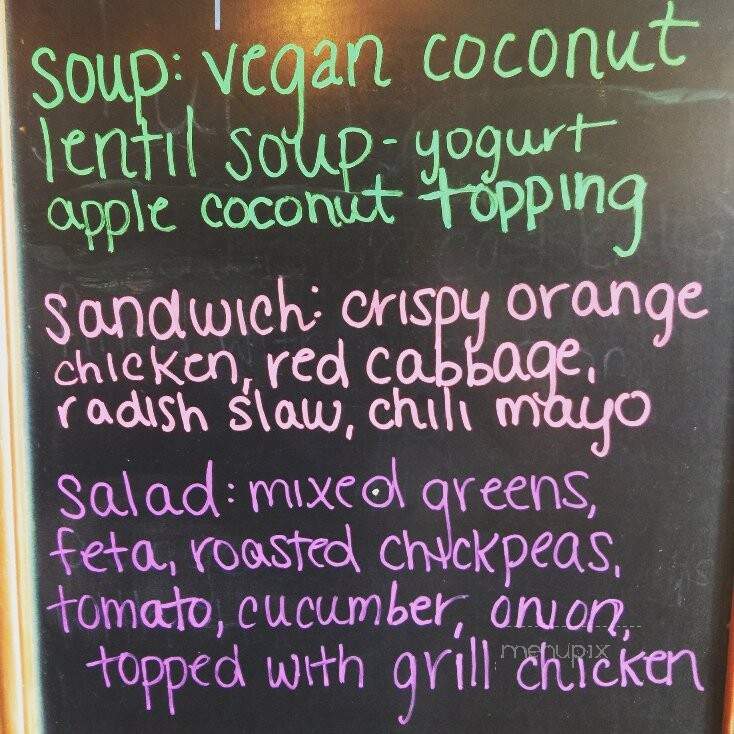 soup: vegan coconut
lentil soup - yogurt
apple coconut topping
sandwich: crispy orange
chicken, red cabbage,
radish slaw, chili mayo
salad: mixed greens,
feta, roasted chickpeas,
tomato, cucumber, onion,
menupix
topped with grill chicken